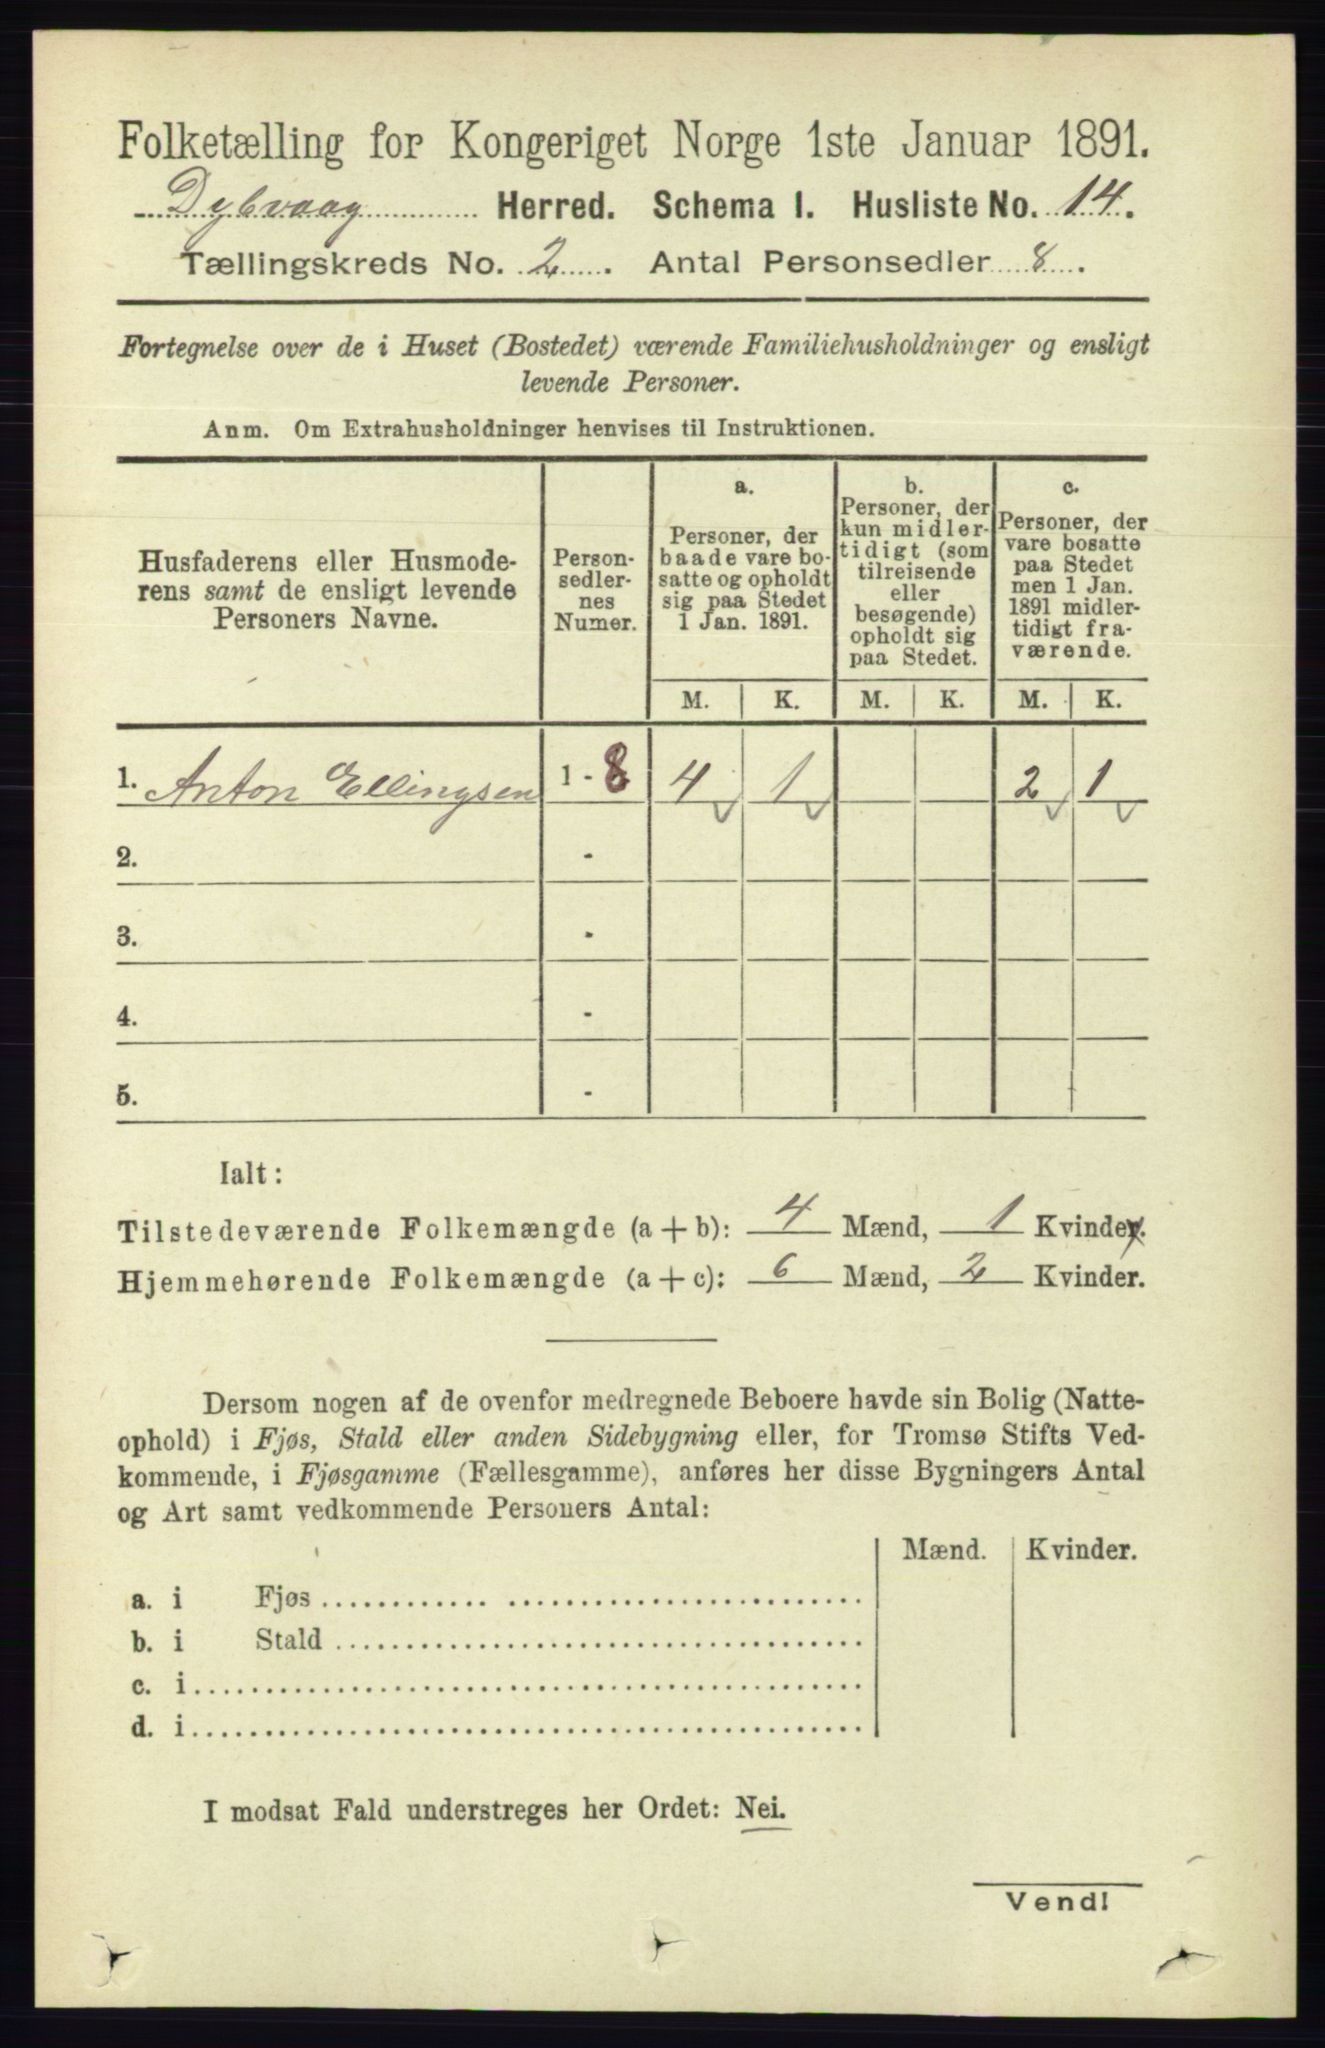 Folketælling for Kongeriget Norge 1ste Januar 1891.
Dybvaag Herred. Schema I. Husliste No. 14.
Tællingskreds No. 2. Antal Personsedler 8.
Fortegnelse over de i Huset (Bostedet) værende Familiehusholdninger og ensligt
levende Personer.
Anm. Om Extrahusholdninger henvises til Instruktionen.
Husfaderens eller Husmode-
rens samt de ensligt levende
Personers Navne.
Person-
sedler-
nes
Numer.
a.
Personer, der
baade vare bo-
satte og opholdt
sig paa Stedet
1 Jan. 1891.
b.
Personer, der
kun midler-
tidigt (som
tilreisende
eller
besøgende)
opholdt sig
paa Stedet.
c.
Personer, der
vare bosatte
paa Stedet
men 1 Jan.
1891 midler-
tidigt fra-
værende.
M. K. M. K. M. K.
1. Anton Ellingsen 1 - 8 4 1 2 1
2. -
3. -
4. -
5. -
Ialt:
Tilstedeværende Folkemængde (a + b): 4 Mænd, 1 Kvinder.
Hjemmehørende Folkemængde (a + c): 6 Mænd, 2 Kvinder.
Dersom nogen af de ovenfor medregnede Beboere havde sin Bolig (Natte-
ophold) i Fjøs, Stald eller anden Sidebygning eller, for Tromsø Stifts Ved-
kommende, i Fjøsgamme (Fællesgamme), anføres her disse Bygningers Antal
og Art samt vedkommende Personers Antal:
Mænd. Kvinder.
a. i Fjøs
b. i Stald
c. i
d. i
I modsat Fald understreges her Ordet: Nei.
Vend!